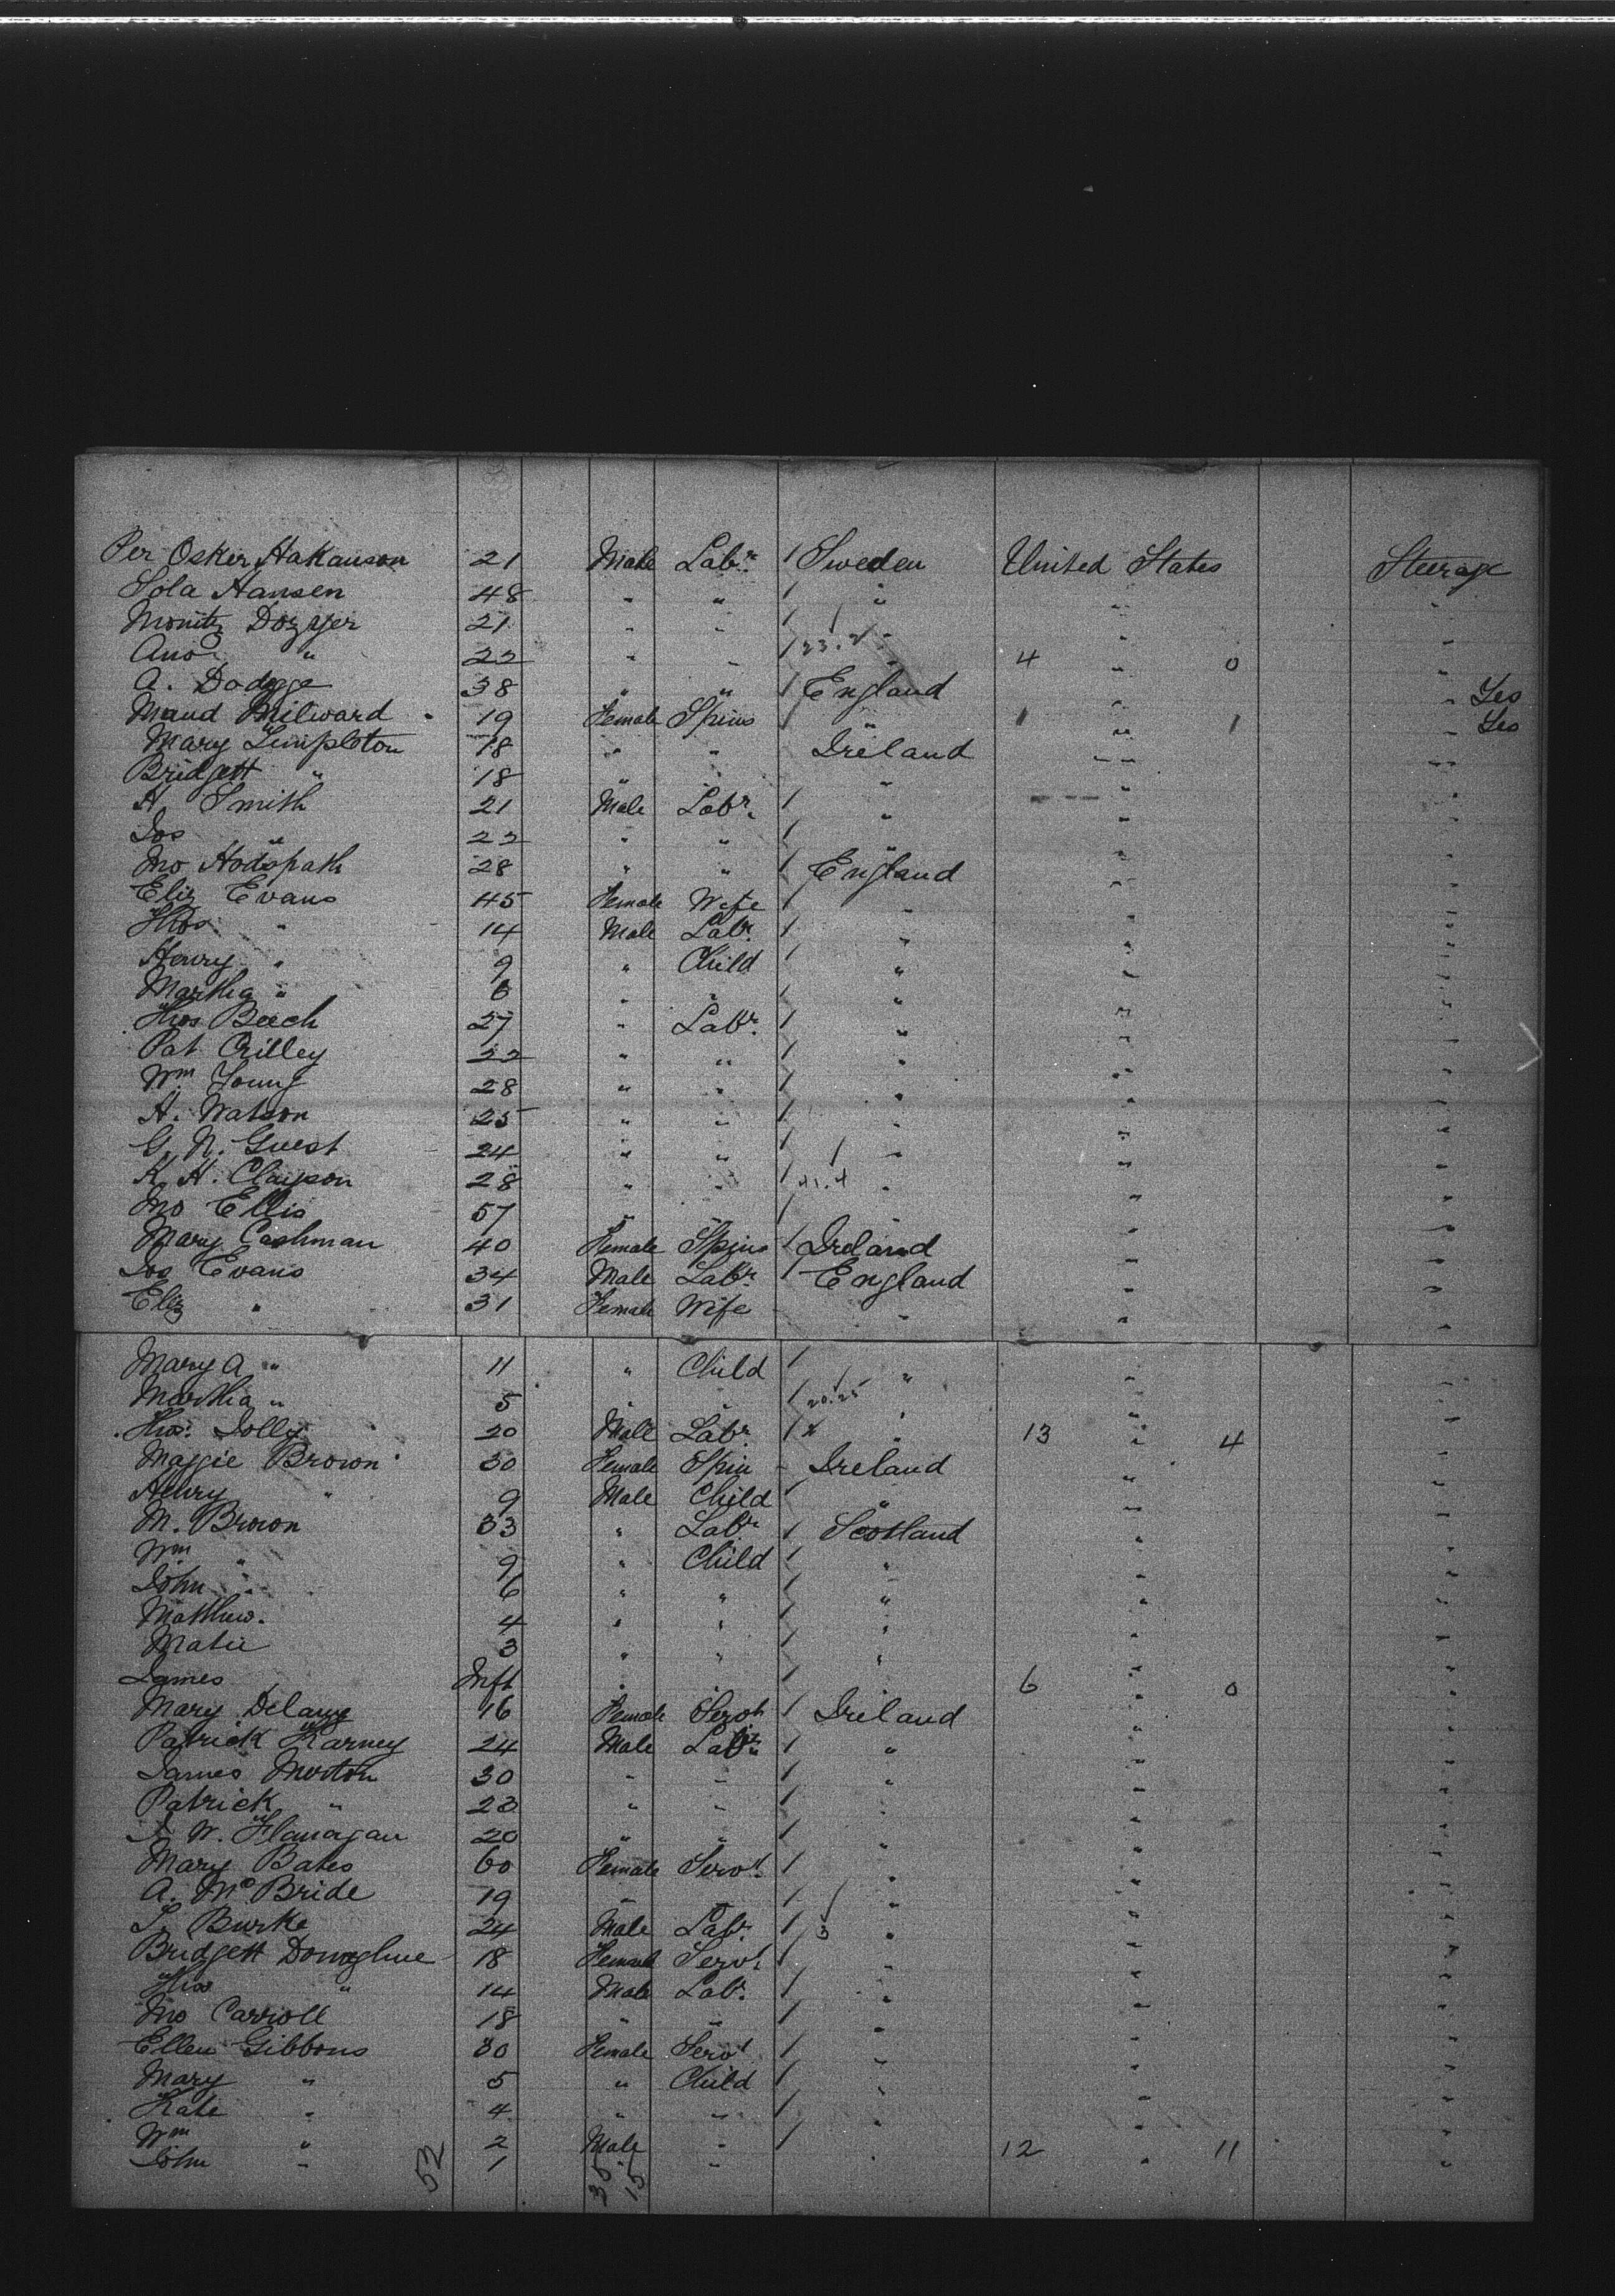 Per Osker Hakanson 21 Male Labr / Sweden United States Steerage
Sola Hansen 48 " " / " " "
Monitz Dozyer 21 " " / " " "
Ano " 22 " " / 23. 4 0 "
A. Dodgge 38 " " / England " " Yes
Maud Milward 19 Female Spins / " 1 " 1 " Yes
Mary Limpleton 18 " " Ireland " "
Bridgett " 18 " " " " "
H. Smith 21 Male Labr / " " "
Jos " 22 " " / " " "
Jno Hodspath 28 " " / England " "
Eliz Evans 45 Female Wife / " " "
Thos " 14 Male Labr / " " "
Henry " 9 " Child / " " "
Martha " 6 " " / " " "
Thos Beech 27 " Labr. / " " "
Pat Crilley 22 " " / " " "
Wm Young 28 " " / " " "
H. Watson 25 " " / " " "
G. N. Guest 24 " " / " " "
K. H. Clayson 28 " " / 41.4 " " "
Jno Ellis 57 " " / " " "
Mary Cashman 40 Female Spins / Ireland " "
Jos Evans 34 Male Labr / England " "
Eliz " 31 Female Wife " " "
Mary A " 11 " Child / " " "
Martha " 5 " " / 20.25 " " "
Thos. Jolly 20 Male Labr / x " 13 " 4 "
Maggie Brown 30 Female Spin Ireland " "
Henry " 9 Male Child / " " "
M. Brown 33 " Labr / Scotland " "
Wm " 9 " Child / " " "
John " 6 " " / " " "
Matthew. 4 " " / " " "
Matie 3 " " / " " "
James Inft " " / 6 " 0 "
Mary Delany 16 Female Servt / Ireland " "
Patrick Karney 24 Male Labr / " " "
James Morton 30 " " / " " "
Patrick " 23 " " / " " "
J. W. Flanagan 20 " " / " " "
Mary Bates 60 Female Servt. / " " "
A. McBride 19 " " / " " "
L. Burke 24 Male Labr. / 3 " " "
Bridgett Donaghue 18 Female Servt / " " "
Thos " 14 Male Labr. / " " "
Jno Carroll 18 " " / " " "
Ellen Gibbons 30 Female Servt / " " "
Mary " 5 " Child / " " "
Kate " 4 " " / " " "
Wm " 2 Male " / " 12 11 "
John " 1 " " " " "
52 35 15